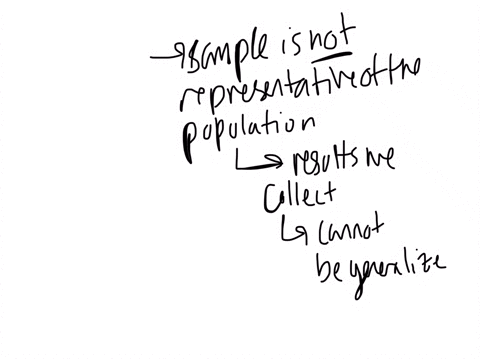 → sample is not
representative of the
population
↳ results we
collect
↳ cannot
be generalize